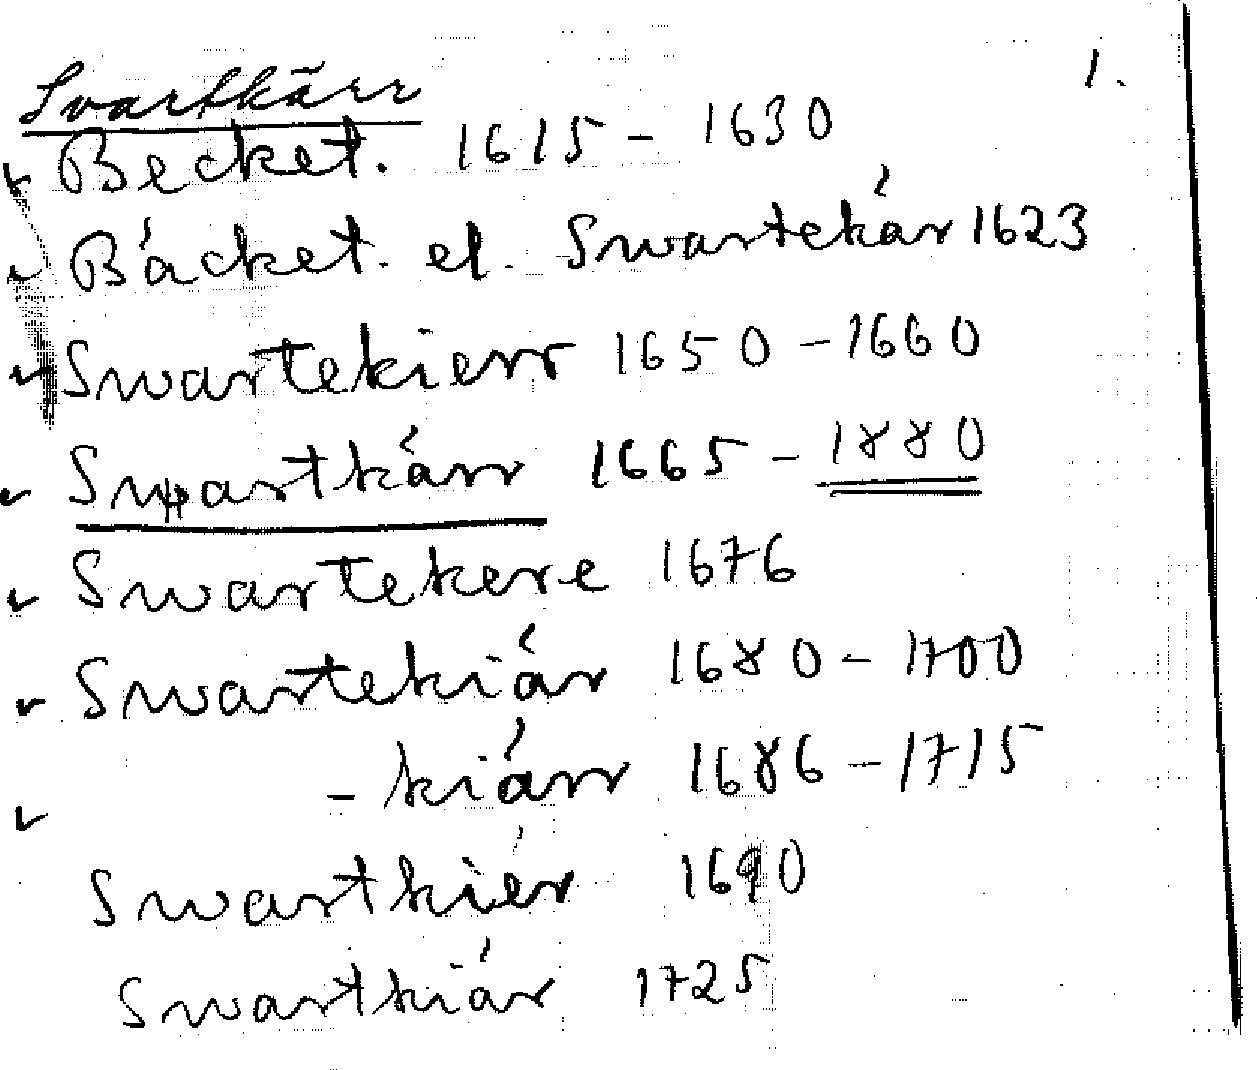 Svartkärr 1.
Becket. 1615 - 1630
Bácket. el. Swartekár 1623
Swartekierr 1650 - 1660
Swartkárr 1665 - 1880
Swartekere 1676
Swartekiár 1680 - 1700
- kiárr 1686 - 1715
Swartkiér 1690
Swartkiár 1725